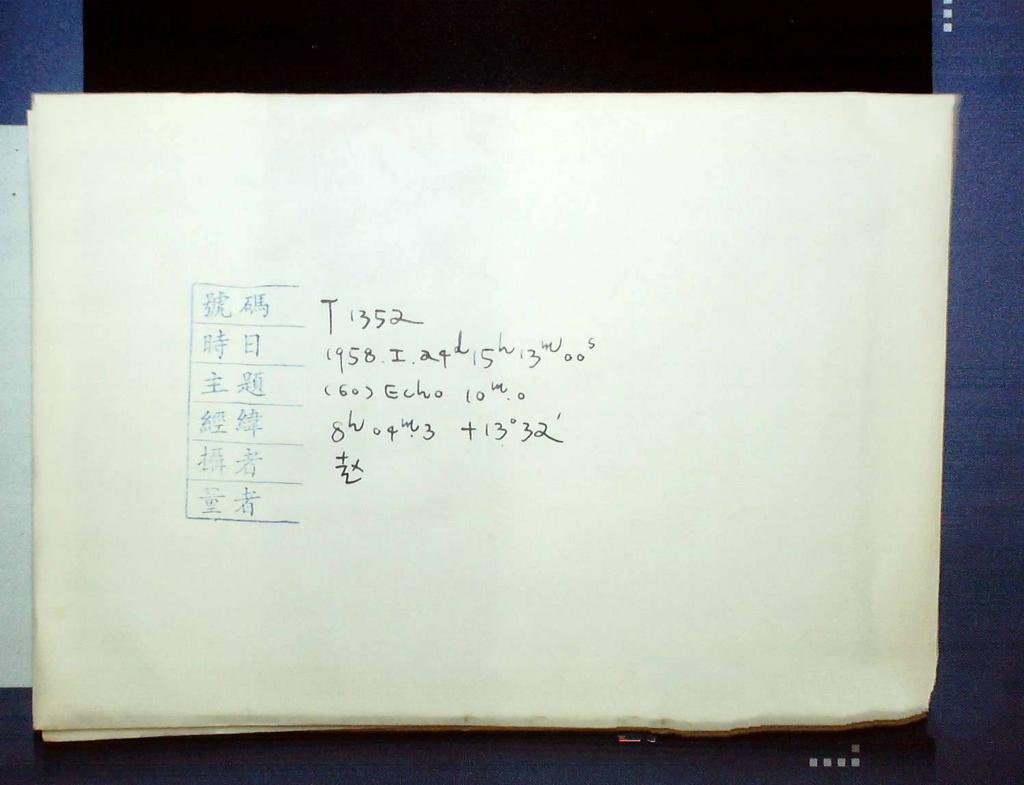 號碼 T 1352
時日 1958. I. 24ᵈ 15ʰ 13ᵐ 00ˢ
主題 (60) Echo 10ᵐ.0
經緯 8ʰ 04ᵐ.3 +13°32′
攝者 赵
量者